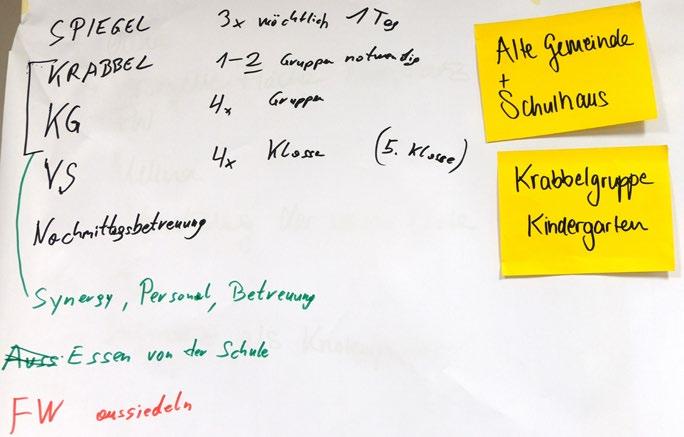 SPIEGEL 3x wöchtlich 1 Tag
KRABBEL 1-2 Gruppen notwendig
KG 4x Gruppen
VS 4x Klasse (5. Klasse)
Nachmittagsbetreuung
Synergy, Personal, Betreuung
Auss. Essen von der Schule
FW aussiedeln
Alte Gemeinde
+
Schulhaus
Krabbelgruppe
Kindergarten